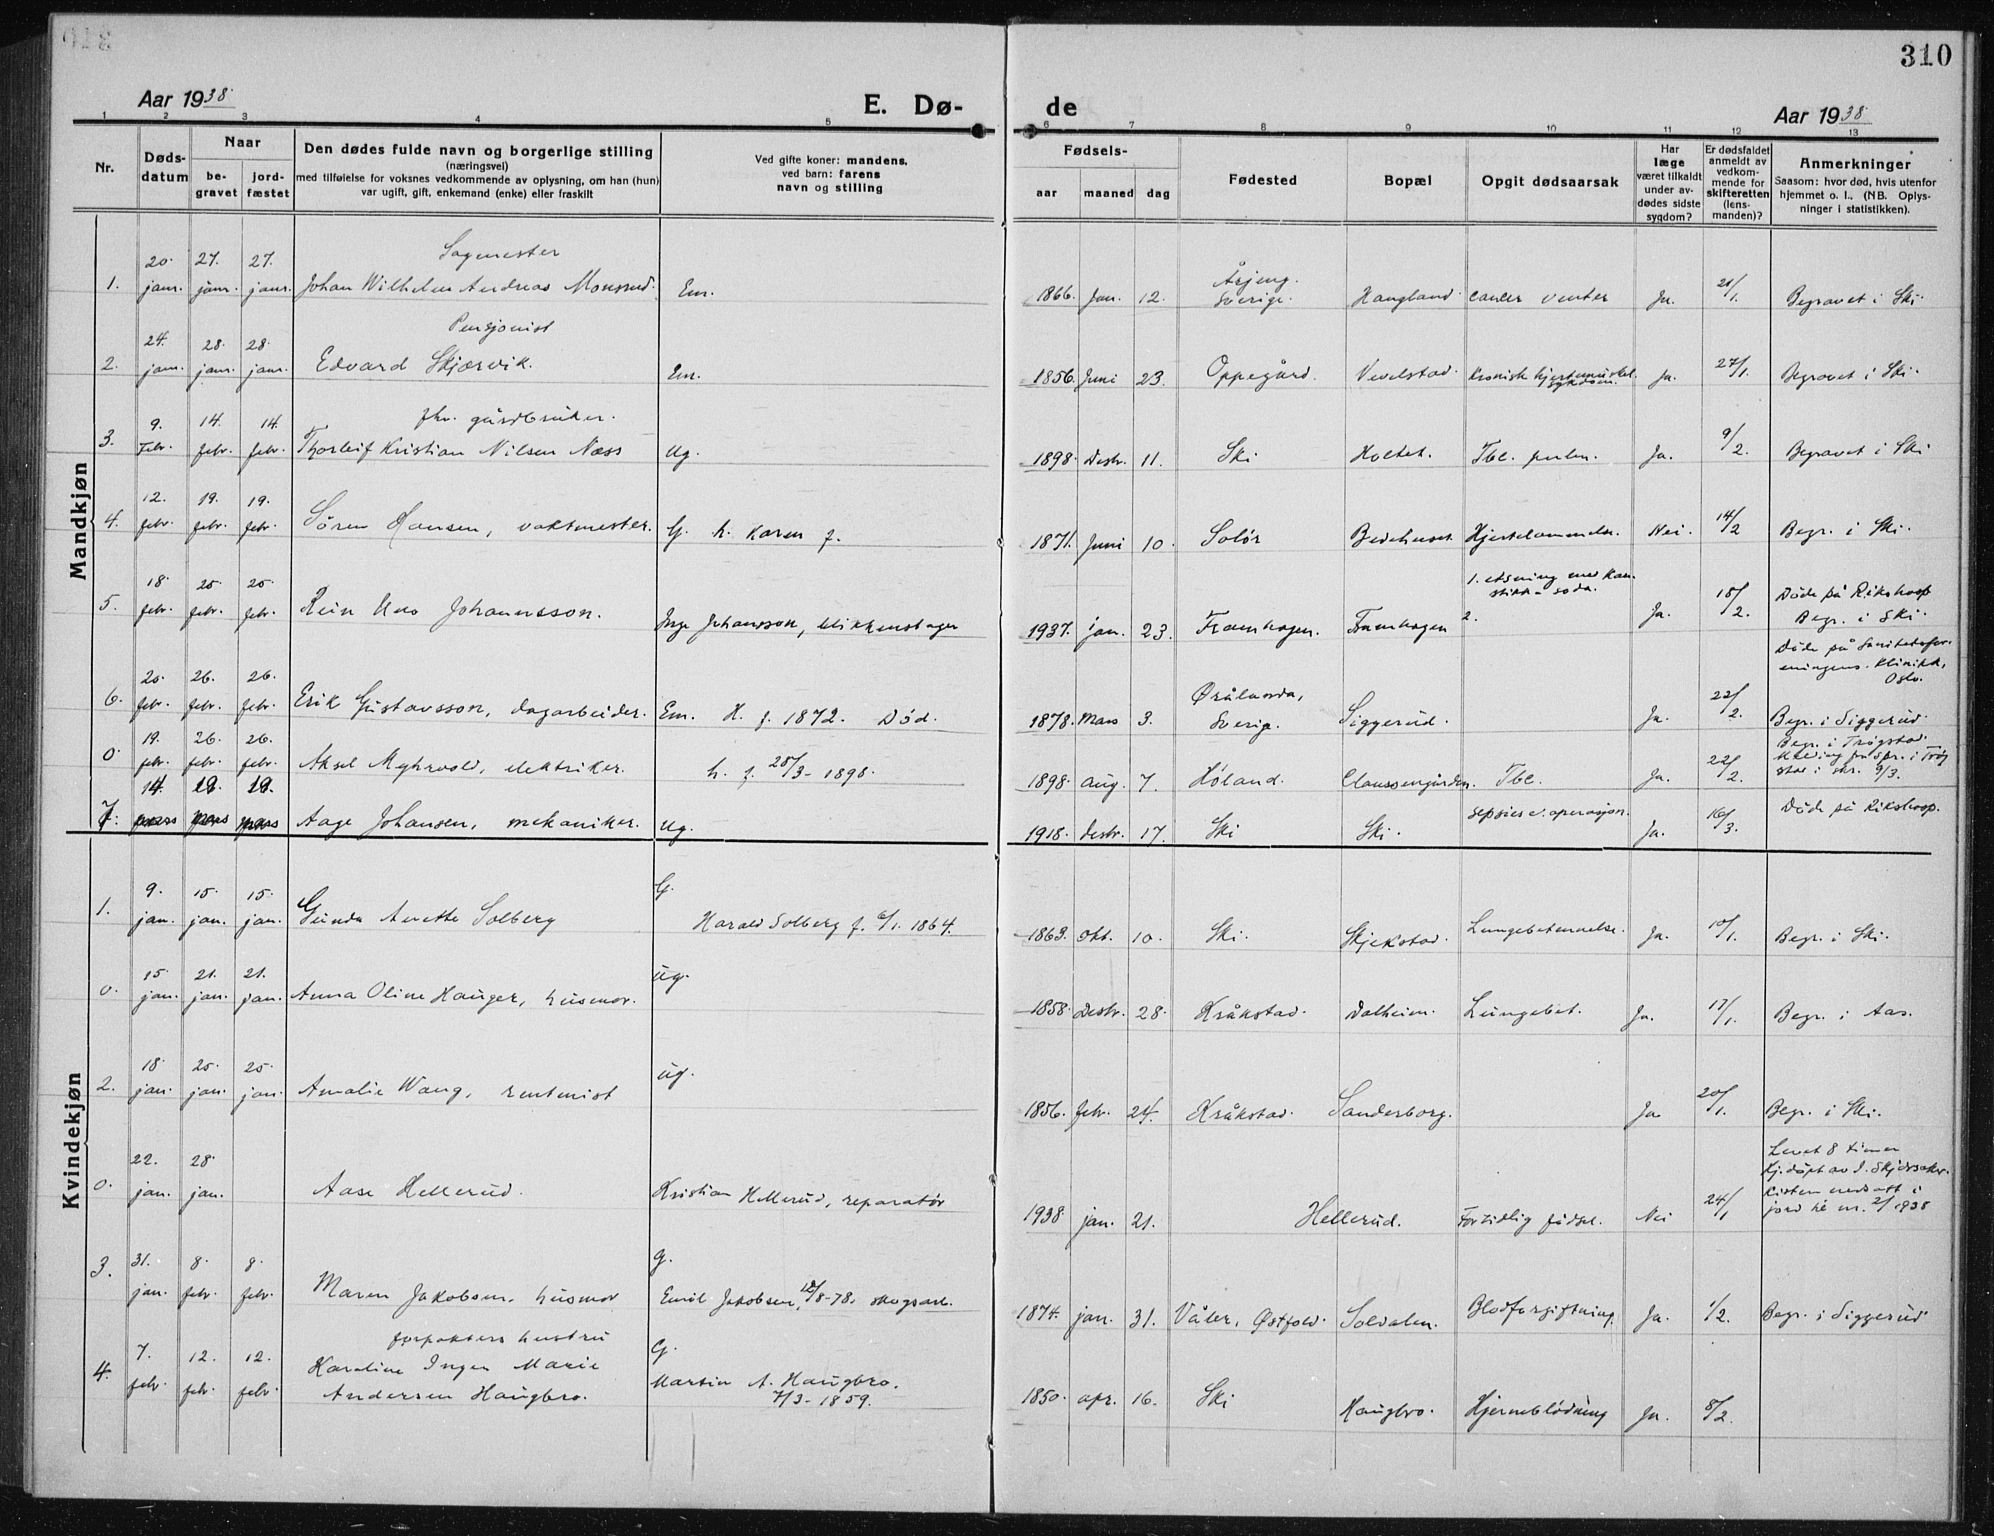 310
Aar 1938
E. Dø-
de
Aar 1938
1 2 3 4 5 6 7 8 9 10 11 12 13
Nr.
Døds-
datum
Naar
be-
gravet
jord-
fæstet
Den dødes fulde navn og borgerlige stilling
(næringsvei)
med tilføielse for voksnes vedkommende av oplysning, om han (hun)
var ugift, gift, enkemand (enke) eller fraskilt
Ved gifte koner: mandens,
ved barn: farens
navn og stilling
Fødsels-
aar maaned dag
Fødested
Bopæl
Opgit dødsaarsak
Har
læge
været tilkaldt
under av-
dødes sidste
sygdom?
Er dødsfaldet
anmeldt av
vedkom-
mende for
skifteretten
(lens-
manden)?
Anmerkninger
Saasom: hvor død, hvis utenfor
hjemmet o. l., (NB. Oplys-
ninger i statistikken).
Mandkjøn
Sagmester
1. 20. janr. 27. janr. 27. janr. Johan Wilhelm Andreas Monsrud. Em. 1866. Jan. 12. Årjeng. Sverige. Haugland cancer venter Ja. 21/1. Begravet i Ski.
Pensjonist
2. 24. janr. 28. janr. 28. janr. Edvard Skjærvik. Em. 1856. Juni 23. Oppegård. Vevelstad. Kronisk hjertemuskel sykdom. Ja. 27/1. Begravet i Ski.
fhv. gårdbruker.
3. 9. Febr. 14. febr. 14. febr. Thorleif Kristian Nilsen Næss ug. 1898. Desbr. 11. Ski Holtet. Tbc. pulm. Ja. 9/2. Begravet i Ski
4. 12. febr. 19. febr. 19. febr. Sören Hansen, vaktmester. G. h. Karen f. 1871. Juni 10. Solör Bedehuset Hjertelammelse. Nei. 14/2 Begr. i Ski.
5. 18. febr. 25. febr. 25. febr. Rein Uno Johannsson. Inge Johansson, blikkenslager 1937. jan. 23. Framhagen. Framhagen 1. etsning med kau- stikk-soda. 2. Ja. 18/2. Döde på Rikshosp Begr. i Ski.
6. 20. febr. 26. febr. 26. febr. Erik Gustavsson, dagarbeider. Em. H. f. 1872. Död. 1878. Mars 3. Sverige Siggerud. Ja. 22/2. Döde på Sanitetsfor- eningens Klinikk, Oslo. Begr. i Siggerud.
0 19. febr. 26. febr. 26. febr. Aksel Myhrvold, elektriker. h. f. 25/3-1898. 1898. Aug. 7. Höland. Claussengården. Tbc. Ja. 22/2. Begr. i Trögstad. Melding fra Spr. i Trög stad i skr. 9/3.
7. 14. mars 19. mars 19. mars Aage Johansen, mekaniker. ug. 1918. desbr. 17. Ski Ski. sepsies e. operasjon. Ja. 16/3. Döde på Rikshosp.
Kvindekjøn
1. 9. jan. 15. jan. 15. jan. Gunda Anette Solberg G. Harald Solberg f. 6/1. 1864. 1863. okt. 10. Ski. Skjekstad. Lungebetennelse. Ja. 10/1. Begr. i Ski.
0. 15. jan. 21. jan. 21. jan. Anna Oline Hauger, husmor. ug. 1858. Desbr. 28. Kråkstad. Dalheim. Lungebet. Ja. 17/1. Begr. i Aas.
2. 18. jan. 25. jan. 25. jan. Amalie Wang, rentenist ug. 1856. febr. 24. Kråkstad. Sanderborg. Ja 20/1. Begr. i Ski.
0. 22. jan. 28. jan. Aase Hellerud. Kristian Hellerud, reparatør 1938 jan. 21. Hellerud. For tidlig födsel. Nei 24/1 Levet 8 timer Hj.döpt av J. Skjersaker. Kisten nedsatt i jord 2/1938
3. 31. jan. 8. febr. 8. febr. Maren Jakobsen, husmor g. Emil Jakobsen, 18/8-78. skogsarb. 1874. jan. 31. Våler, Østfold. Soldalen. Blodforgiftning. Ja. 1/2. Begr. i Siggerud
forpakters hustru
4. 7. febr. 12. febr. 12. febr. Karoline Inger Marie Andersen Haugbro. G. Martin A. Haugbro. 7/3-1859. 1850. apr. 16. Ski Haugbro. Hjerneblödning Ja. 8/2.